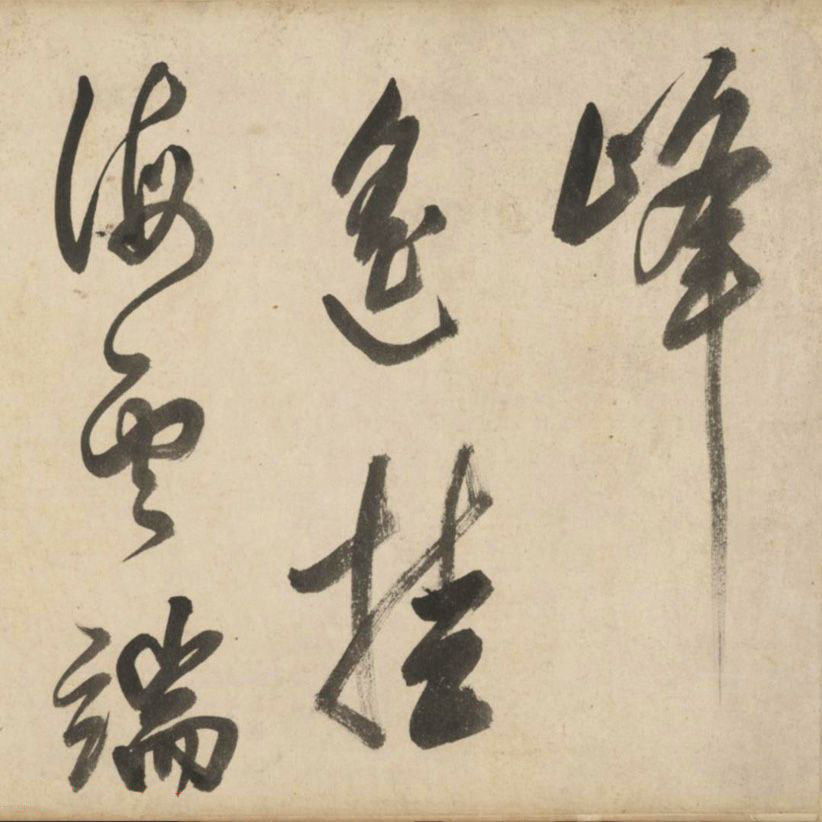 峰
遙挂
海雲端